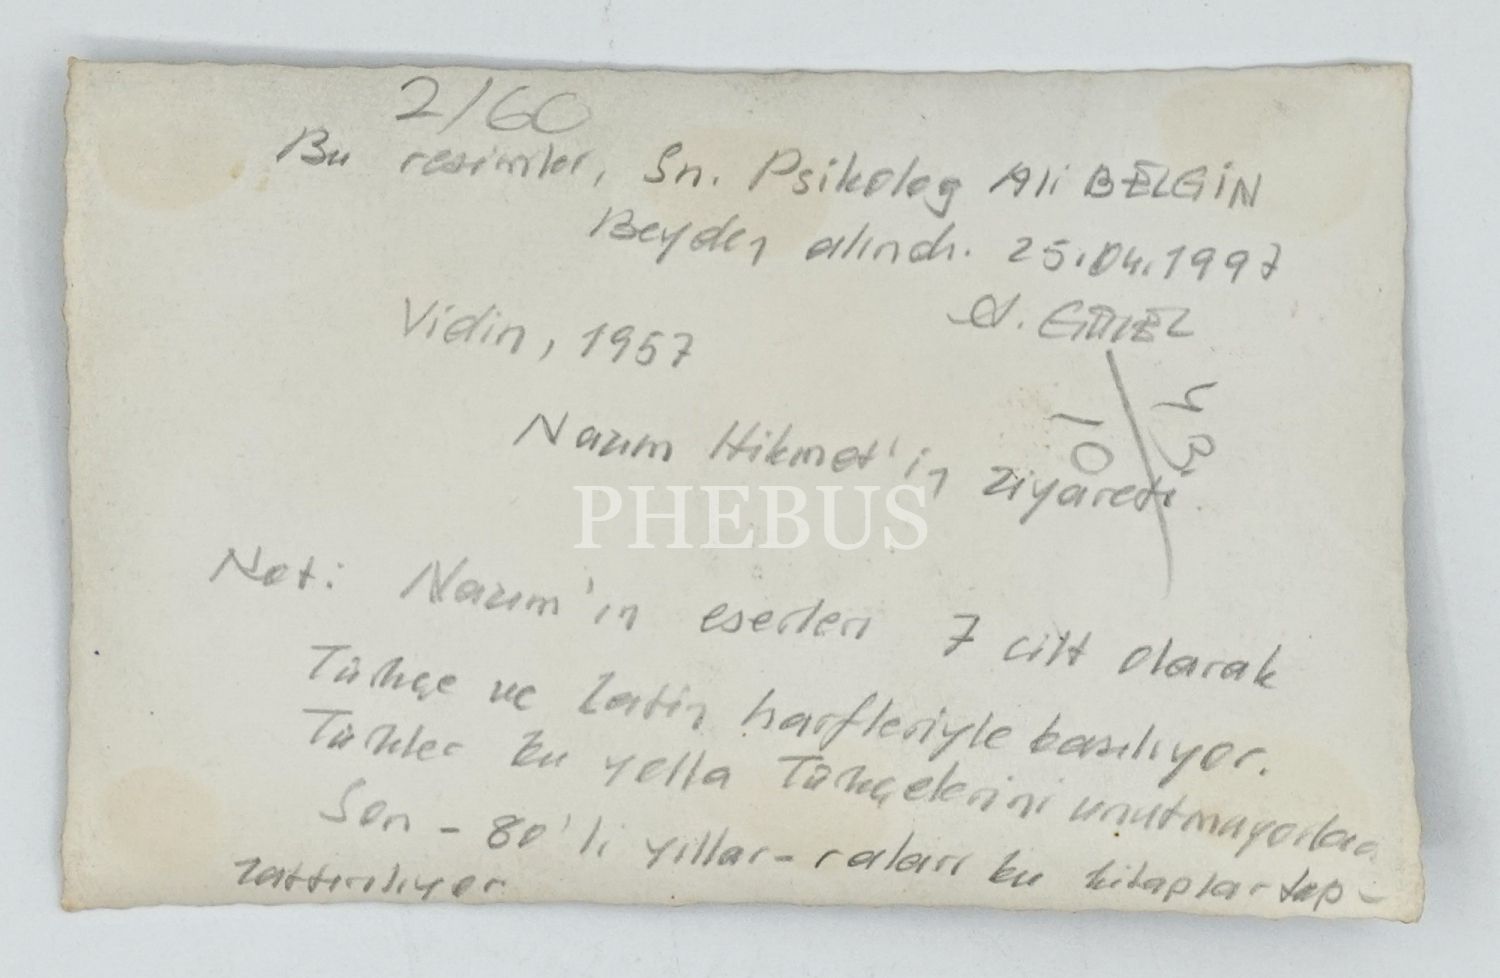 2/60
Bu resimler, Sn. Psikolog Ali BELGİN
Beyden alındı. 25.04.1997
Vidin, 1957
43
10
Nazım Hikmet'in ziyareti.
PHEBUS
Not: Nazım'ın eserleri 7 cilt olarak
Türkçe ve Latin harfleriyle basılıyor.
Türkler bu yolla Türkçelerini unutmuyorlar
Son - 80'li yıllar - raları bu kitaplar top-
lattırılıyor